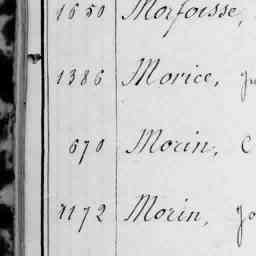 1650 Morfoisse,
1386 Morice, Ju
670 Morin, C
1172 Morin, Jo